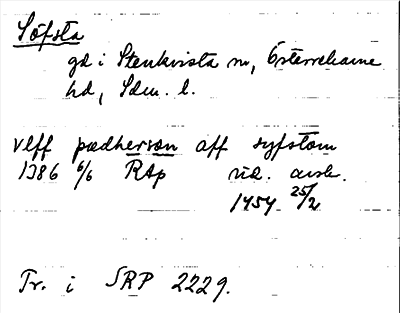 Söfsta
gd i Stenkvista sn, Österrekarne
hd, Sdm. l.
vlff pædherson aff syfstom
1386 6/6 RAp vid. avsk.
1454 25/2
Tr. i SRP 2229.